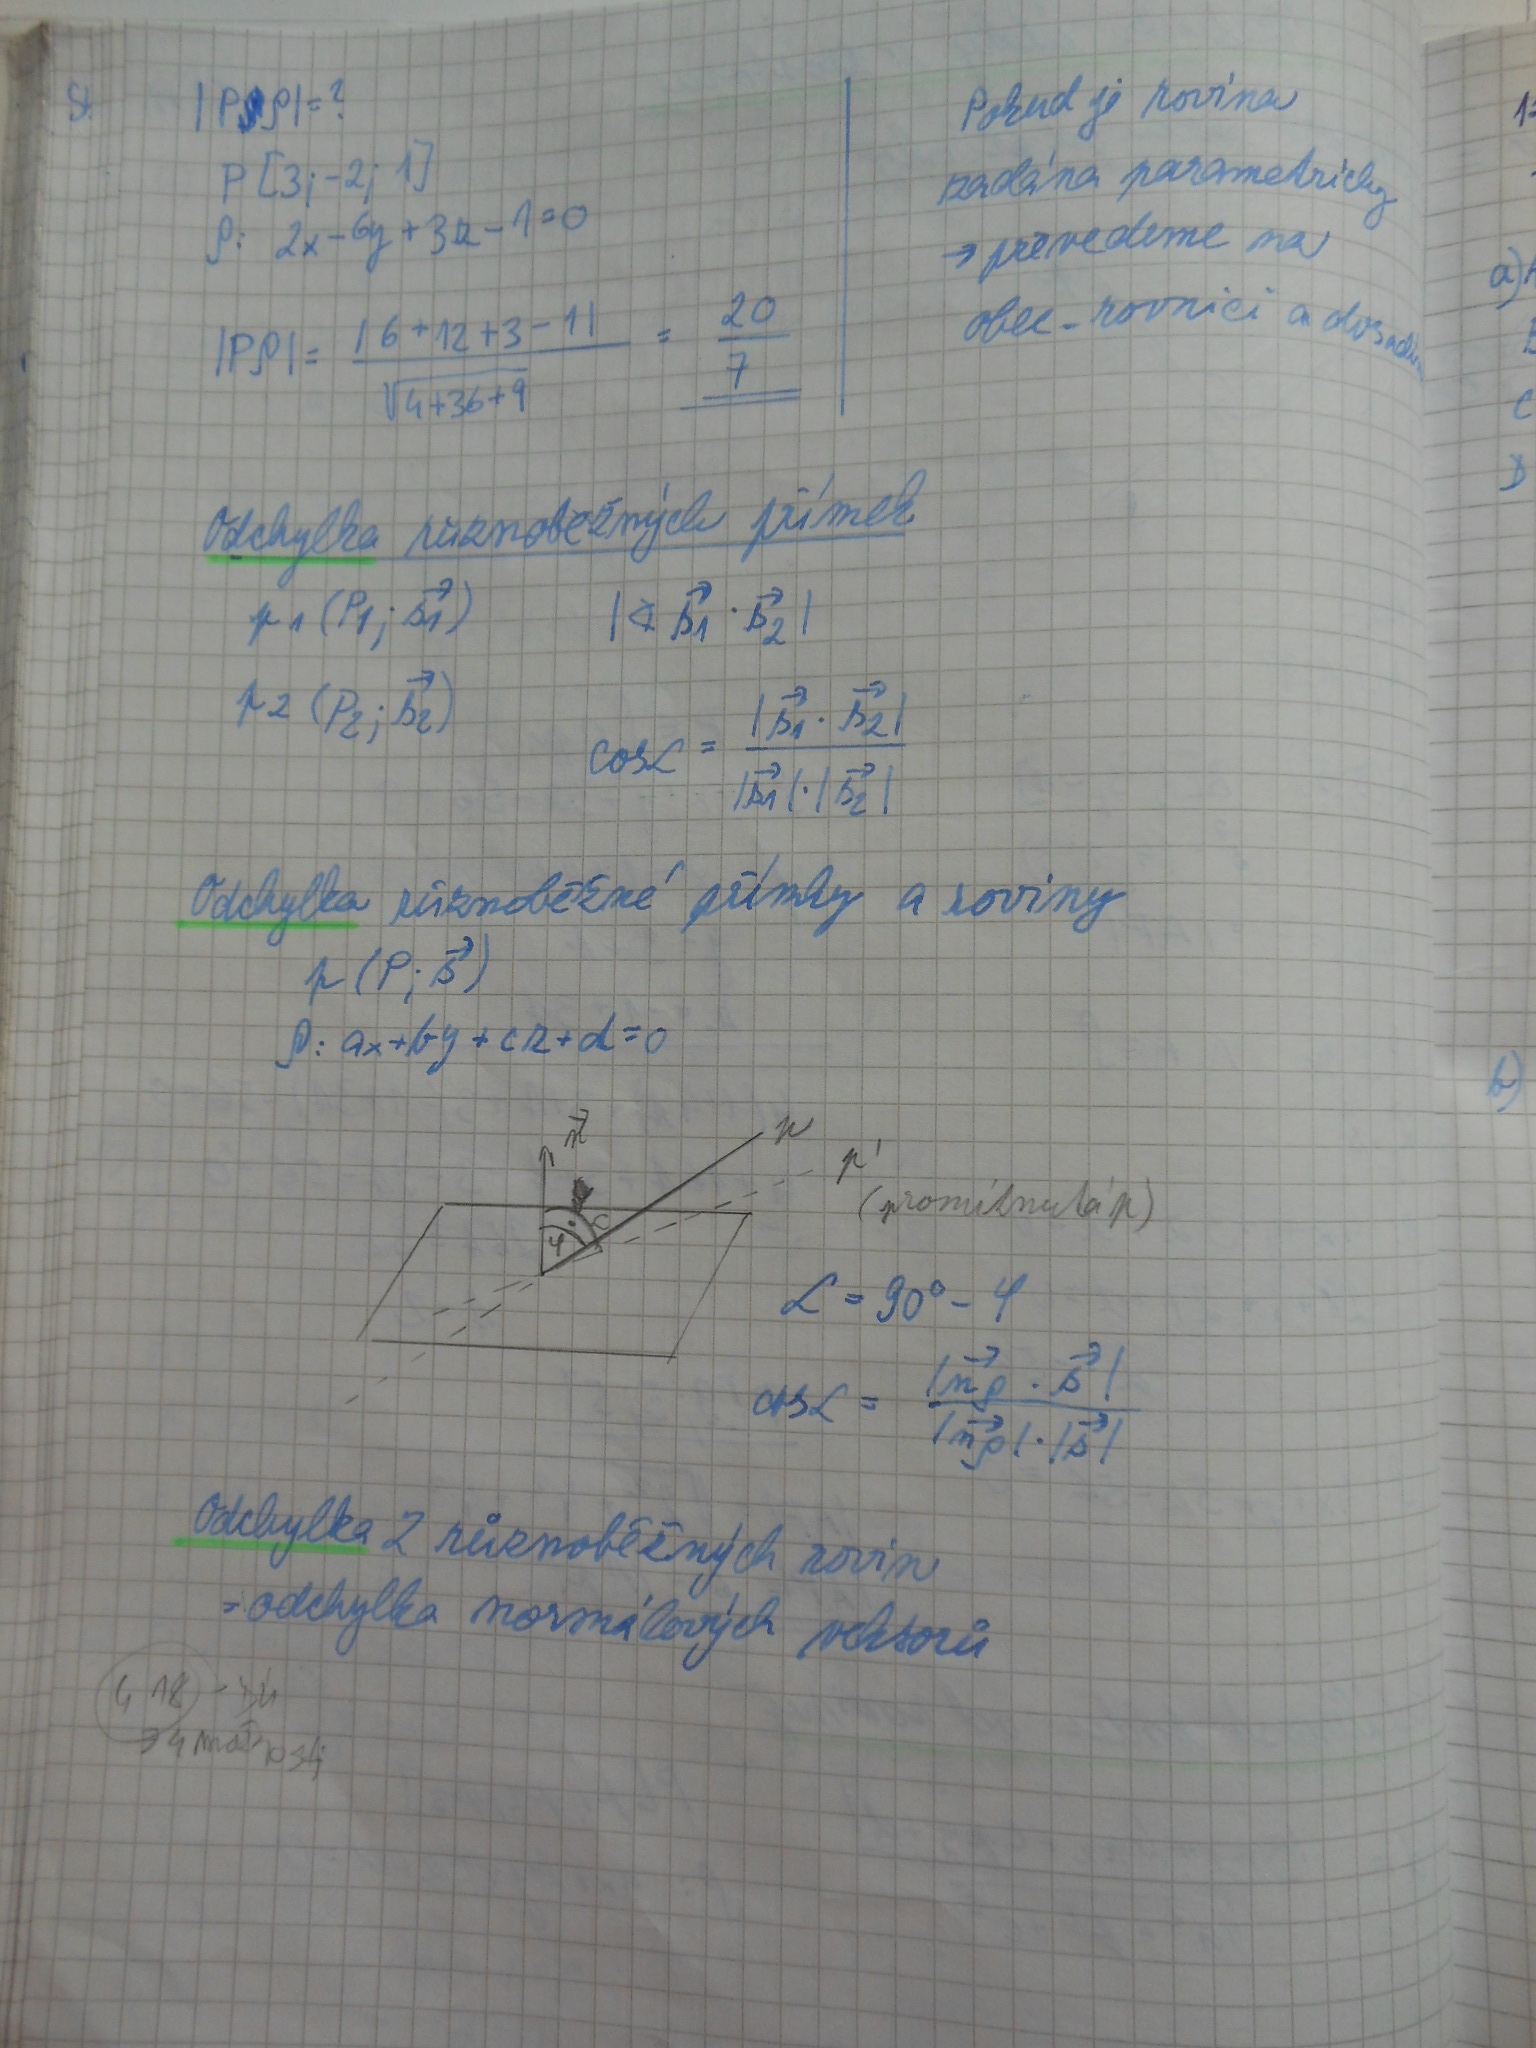 |Pρ| = ?
P [3; -2; 1]
ρ: 2x - 6y + 3z - 1 = 0
|Pρ| = |6 + 12 + 3 - 1| / √4+36+9 = 20 / 7
Pokud je rovina
zadána parametricky
→ převedeme na
obec. rovnici a dosadím
Odchylka různoběžných přímek
p1 (P1; s⃗1)
|∢ s⃗1 · s⃗2|
p2 (P2; s⃗2)
cos α = |s⃗1 · s⃗2| / |s⃗1| · |s⃗2|
Odchylka různoběžné přímky a roviny
p (P; s⃗)
ρ: ax + by + cz + d = 0
n⃗
p
p'
(promítnutá p)
φ
α = 90° - φ
cos α = |n⃗ρ · s⃗| / |n⃗ρ| · |s⃗|
Odchylka 2 různoběžných rovin
= odchylka normálových vektorů
→ 4 možnosti
1
a)
C
D
b)